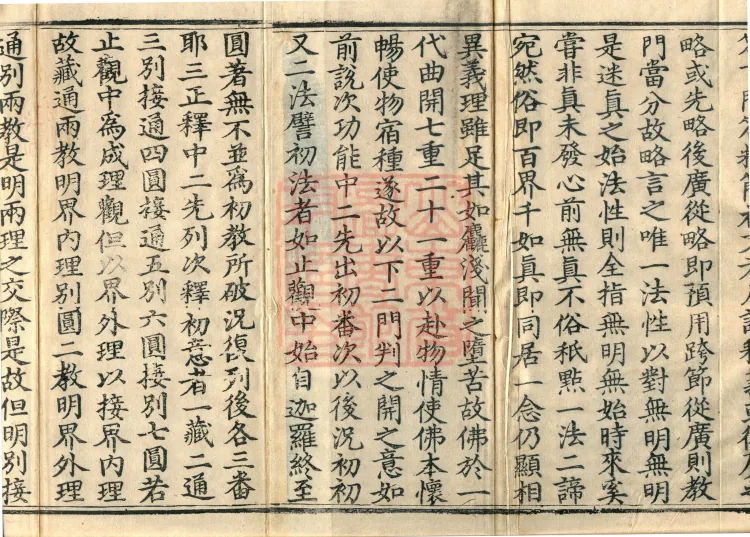 略或先略後廣從略即預用跨節從廣則教
門當分故略言之唯一法性以對無明無明
是迷眞之始法性則全指無明無始時來奚
嘗非眞未發心前無眞不俗秖點一法二諦
宛然俗即百界千如眞即同居一念仍顯相
異義理雖足其如麤淺聞之墮苦故佛於一
代曲開七重二十一重以赴物情使佛本懷
暢使物宿種遂故以下二門判之開之意如
前說次功能中二先出初番次以後況初初
又二法譬初法者如止觀中始自迦羅終至
圓著無不並爲初教所破況復列後各三番
耶三正釋中二先列次釋初意者一藏二通
三別接通四圓接通五別六圓接別七圓若
止觀中爲成理觀但以界外理以接界內理
故藏通兩教明界內理別圓二教明界外理
通別兩教是明兩理之交際是故但明別接